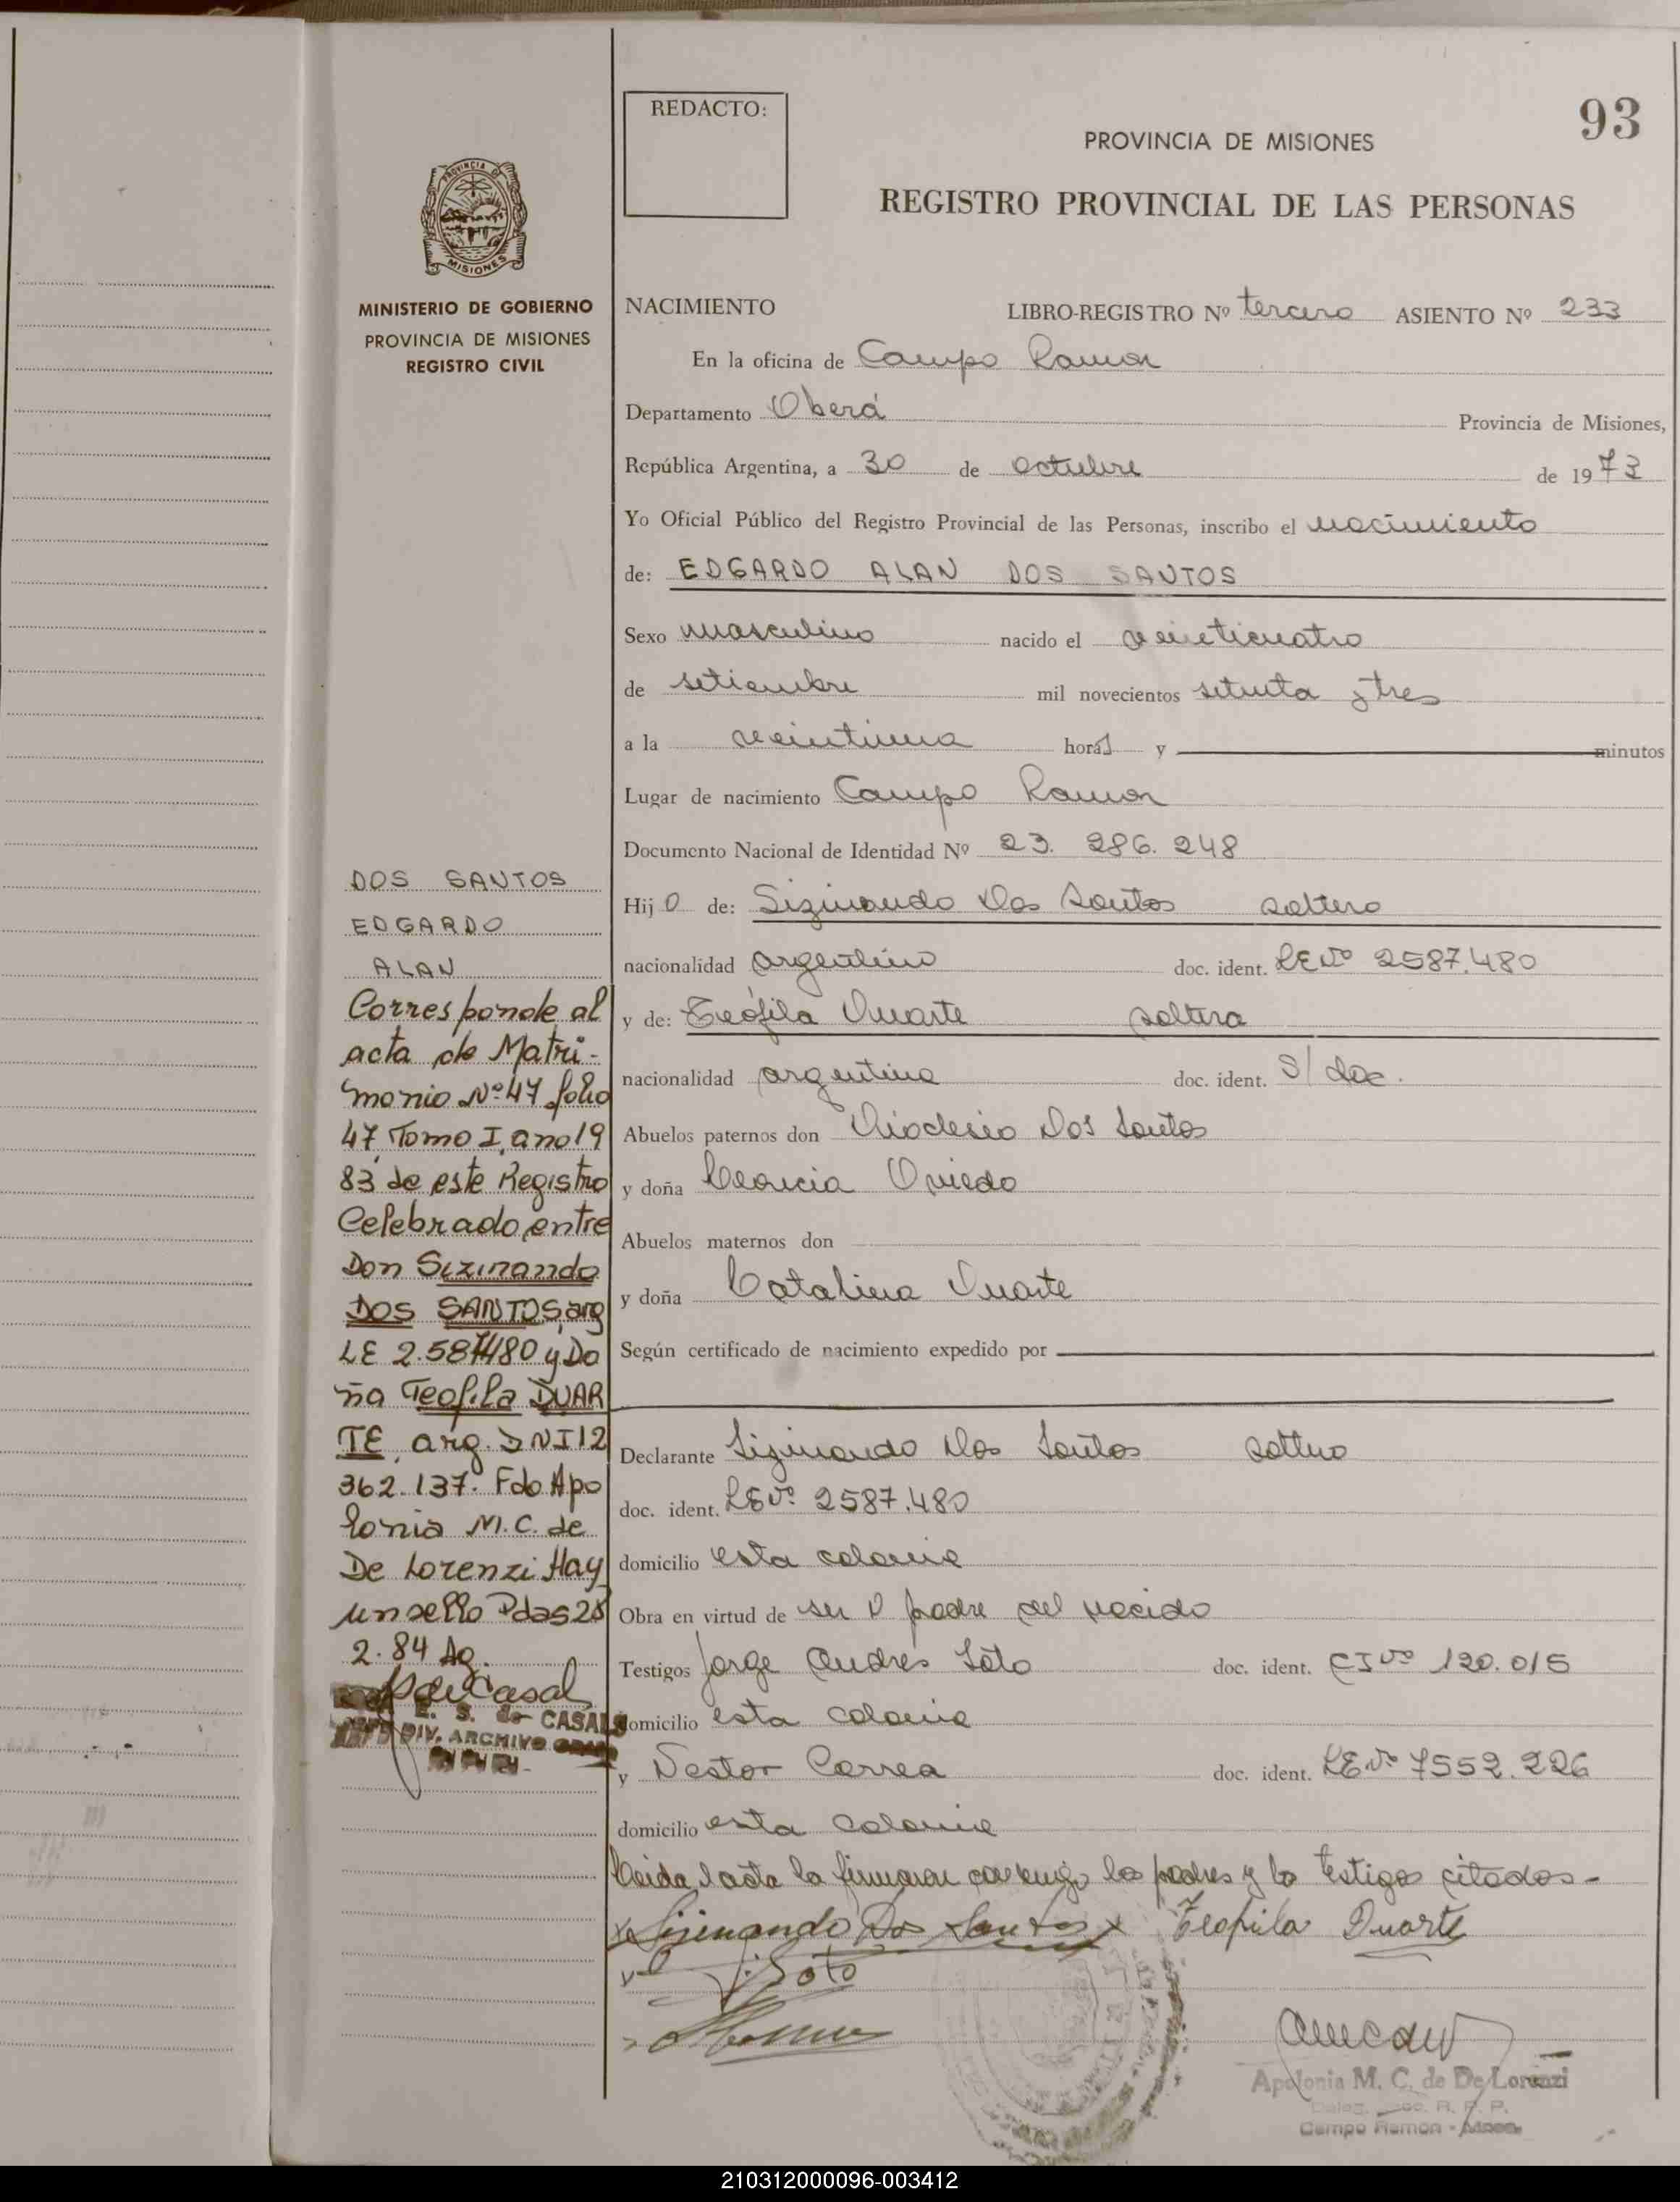 REDACTO:
93
PROVINCIA DE MISIONES
REGISTRO PROVINCIAL DE LAS PERSONAS
PROVINCIA DE
MISIONES
MINISTERIO DE GOBIERNO
PROVINCIA DE MISIONES
REGISTRO CIVIL
NACIMIENTO LIBRO-REGISTRO Nº tercero ASIENTO Nº 233
En la oficina de Campo Ramon
Departamento Oberá Provincia de Misiones,
República Argentina, a 30 de octubre de 1973
Yo Oficial Público del Registro Provincial de las Personas, inscribo el nacimiento
de: EDGARDO ALAN DOS SANTOS
Sexo masculino nacido el veinticuatro
de setiembre mil novecientos setenta y tres
a la veintiuna horas y minutos
Lugar de nacimiento Campo Ramon
Documento Nacional de Identidad Nº 23. 286. 248
Hijo de: Sizinando Dos Santos soltero
nacionalidad argentino doc. ident. LE Nº 2587.480
y de: Teófila Duarte soltera
nacionalidad argentina doc. ident. S/ doc.
Abuelos paternos don Dos Santos
y doña Oviedo
Abuelos maternos don
y doña Catalina Duarte
Según certificado de nacimiento expedido por
Declarante Sizinando Dos Santos soltero
doc. ident. LE Nº 2587.480
domicilio esta colonia
Obra en virtud de ser el padre del nacido
Testigos Jorge Andrés Soto doc. ident. CI Nº 120.015
domicilio esta colonia
y Nestor Correa doc. ident. LE Nº 7552.226
domicilio esta colonia
Leida el acta la firmaron conmigo los padres y los testigos citados-
Sizinando Dos Santos x Teofila Duarte
J. Soto
Apolonia M. C. de De Lorenzi
R. P. P.
Campo Ramon - Mnes.
DOS SANTOS
EDGARDO
ALAN
Corresponde al
acta de Matri-
monio Nº 47 folio
47 Tomo I, ano 19
83 de este Registro
Celebrado entre
Don Sizinando
DOS SANTOS, arg
LE 2.587480 y Do
ña Teofila DUAR
TE, arg. DNI 12
362.137. Fdo Apo
lonia M.C. de
De Lorenzi Hay
un sello Pdas 28
2.84 Ag.
E. S. de CASALS
DIV. ARCHIVO
210312000096-003412